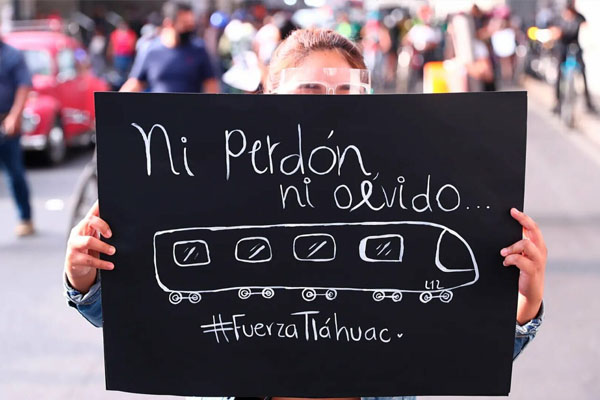 Ni Perdón
ni olvido...
L12
#FuerzaTláhuac.